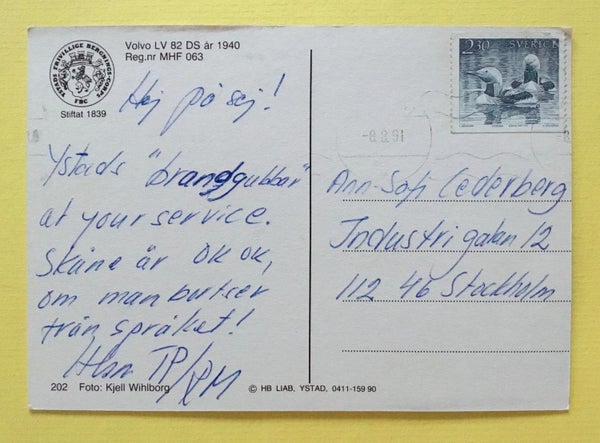 Volvo LV 82 DS år 1940
Reg.nr MHF 063
YSTADS FRIVILLIGE BERGNINGS-CORPS
FBC
Stiftat 1839
Hej på sej!
Ystads "brandgubbar"
at your service.
Skåne är OK OK,
om man bortser
från språket!
TP/PM
202 Foto: Kjell Wihlborg
© HB LIAB, YSTAD, 0411-159 90
2.30 SVERIGE
-8.8.91
Ann-Sofi Cederberg
Industrigatan 12
112 46 Stockholm